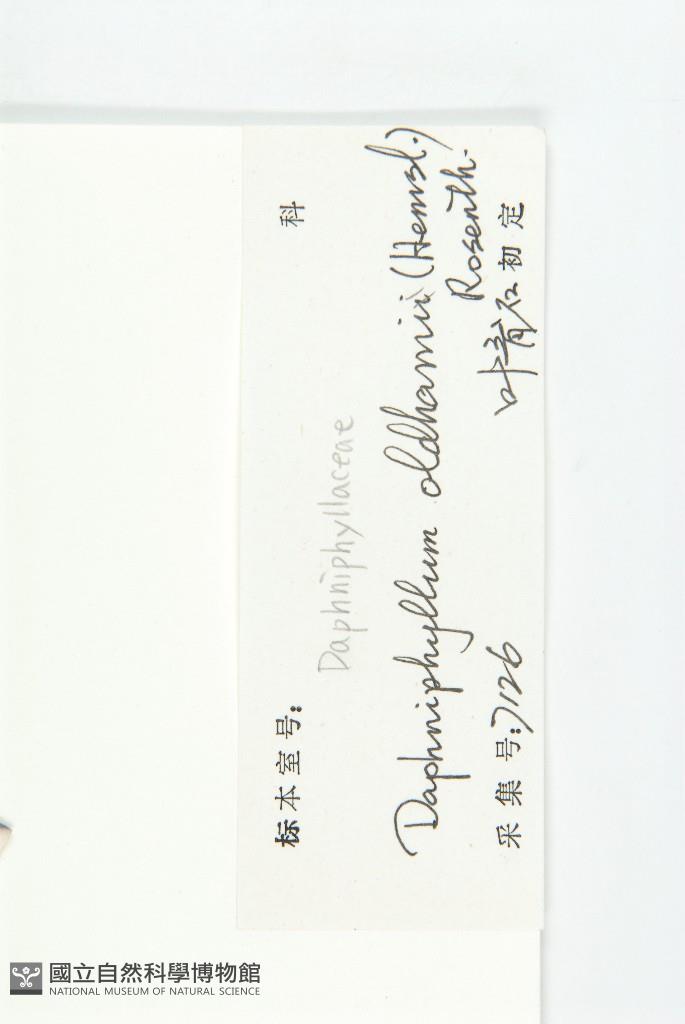 标本室号:
科
Daphniphyllaceae
Daphniphyllum oldhamii (Hemsl.)
Rosenth.
采集号:7126
初定
國立自然科學博物館
NATIONAL MUSEUM OF NATURAL SCIENCE